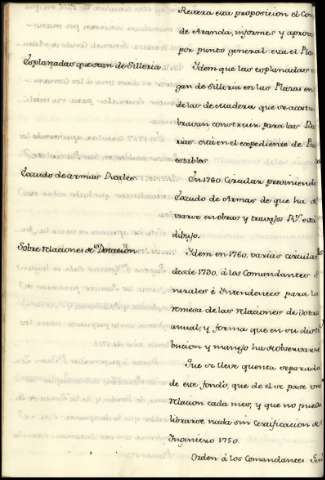 Recaxa esta proposicion el Con
de Aranda, informes y aprova
por punto general esta el Pla
Explanadas que sean de Silleria
Idem que las explanadas
gan de Silleria en las Plazas en
de las de maderas que se acostu
braban construir para las Ba
rias esta en el expediente de
sables
Escudo de armas Reales
En 1760. Circular previniendo
Escudo de Armas de que ha de
varse en obras y travajos Rs. esta
dibujo.
Sobre relaciones de Dotacion
Idem en 1760. varias circular
desde 1730. à los Comandantes
nerales è Intendentes para la
remesa de las relaciones de Dotac
anual y forma que en su distri
bucion y manejo ha de observarse
Que se lleve quenta separada
de este fondo, que de el se pase una
relacion cada mes, y que no pueda
librarse nada sin Certificacion de
Ingeniero 1750.
Orden à los Comandantes